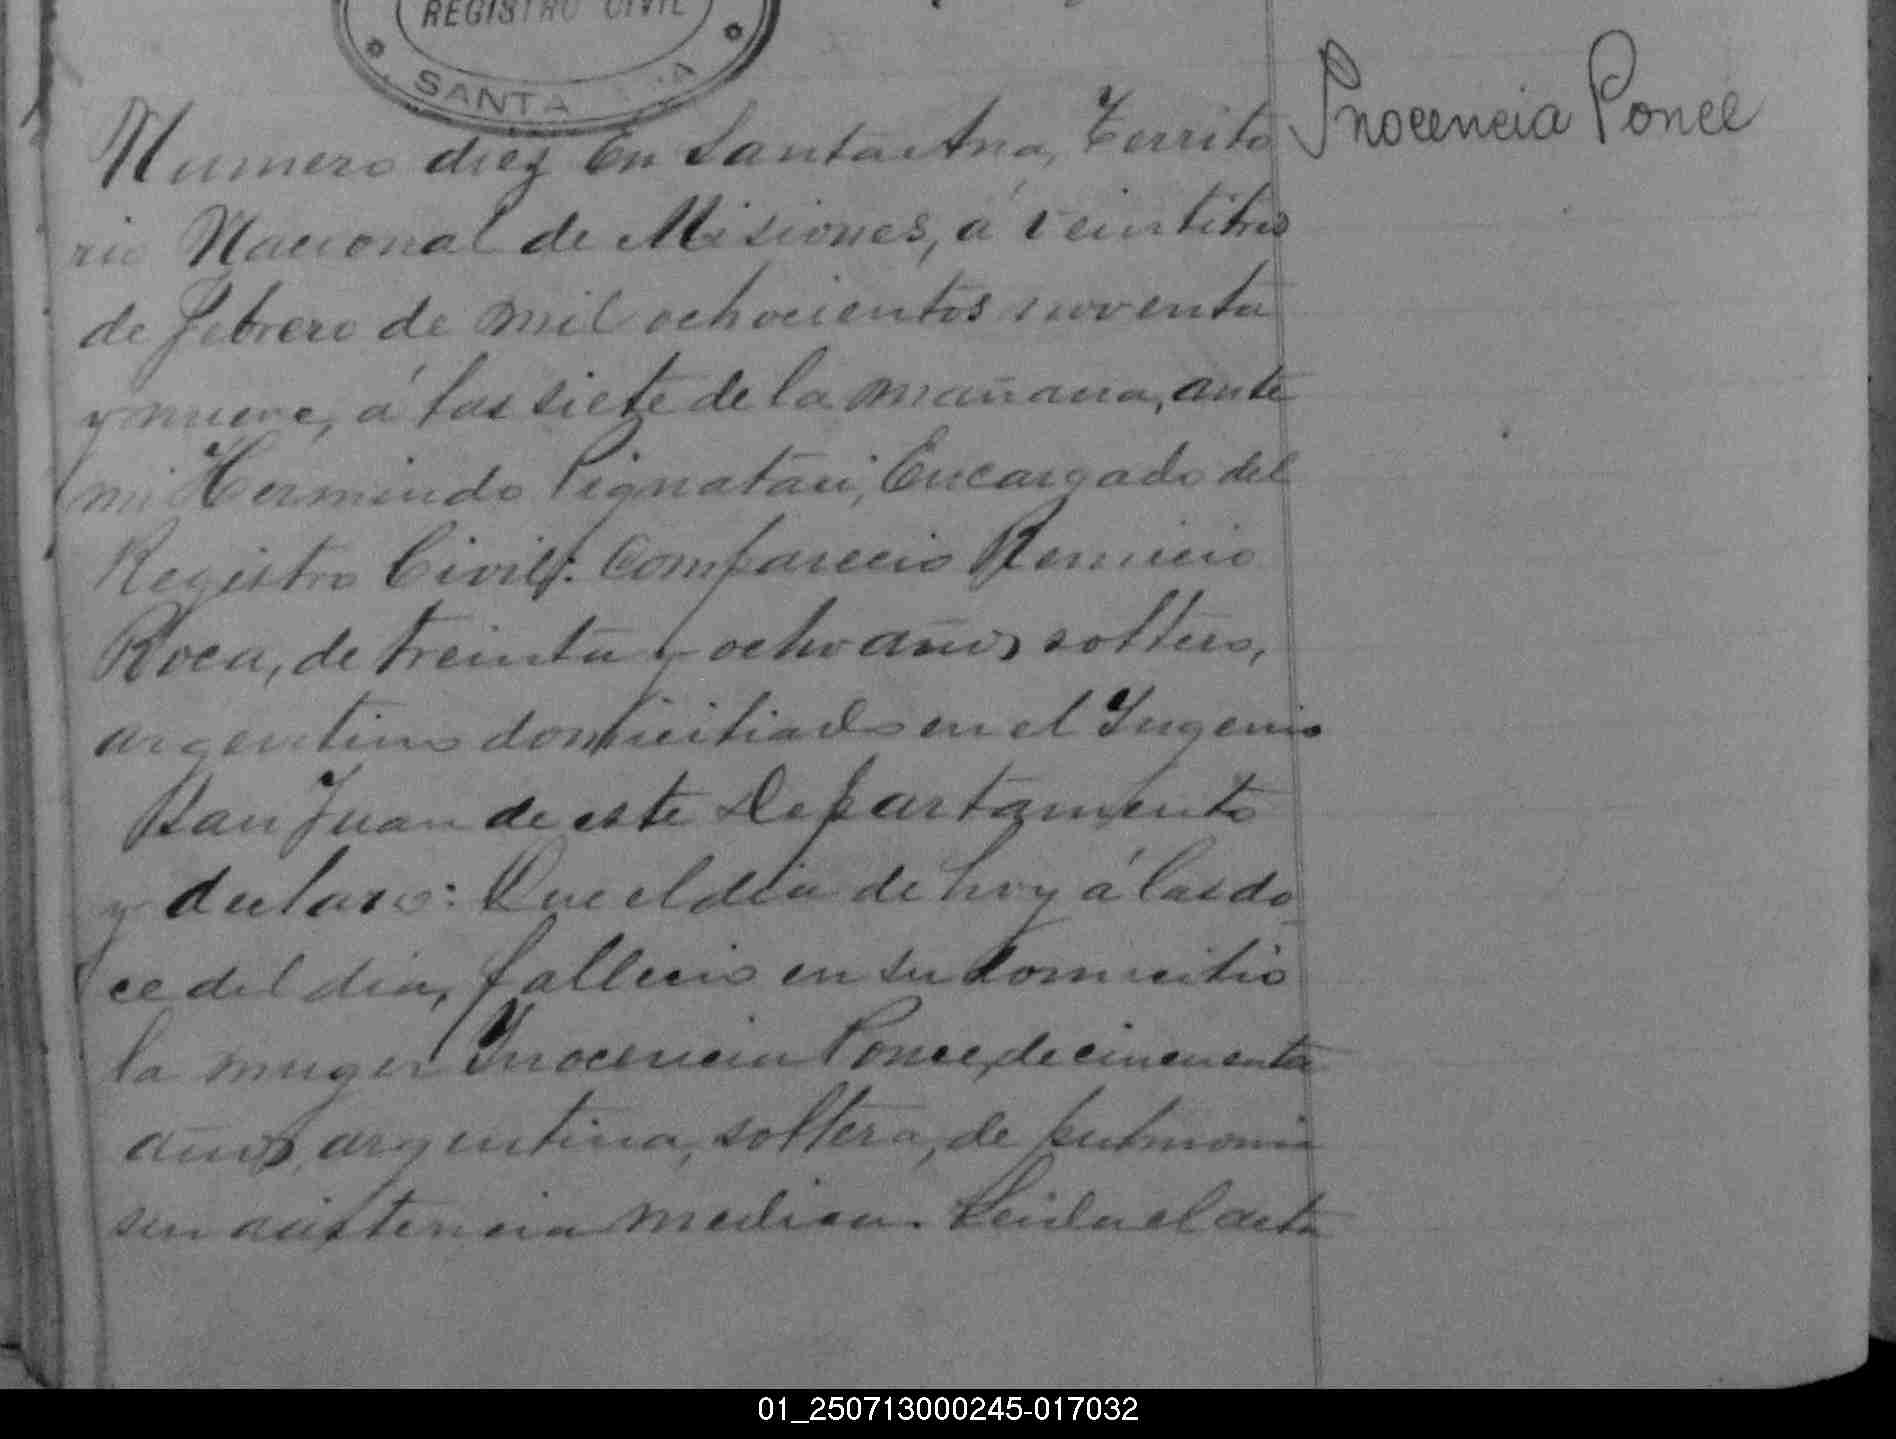 REGISTRO CIVIL
SANTA
Inocencia Ponce
Numero diez En Santa Ana, Territo
rio Nacional de Misiones, á veintitres
de febrero de mil ochocientos noventa
y nueve, á las siete de la mañana, ante
mi Hermindo Pignatari, Encargado del
Registro Civil: Comparecio Remicio
Roca, de treinta y ocho años soltero,
argentino domiciliado en el Ingenio
San Juan de este Departamento
y declaro: Que el dia de hoy á las do
ce del dia, fallecio en su domicilio
la muger Inocencia Ponce, de cincuenta
años, argentina, soltera, de pulmonia
sin asistencia medica. Leida el acta
01_250713000245-017032